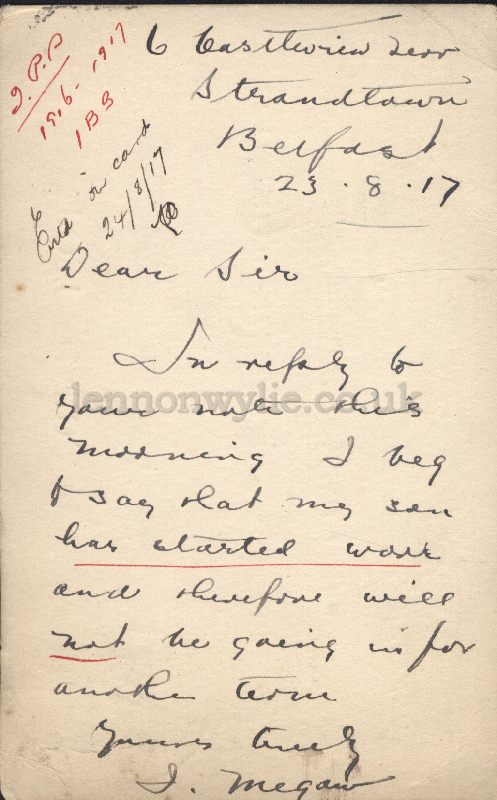 6 Eastview Terr
Strandtown
Belfast
23.8.17
J.P.P
1916-1917
1BB
Entd on card
24/8/17
Dear Sir
In reply to
your note this
morning I beg
to say that my son
has started work
and therefore will
not be going in for
another term
Yours truly
J. Megaw
lennonwylie.co.uk